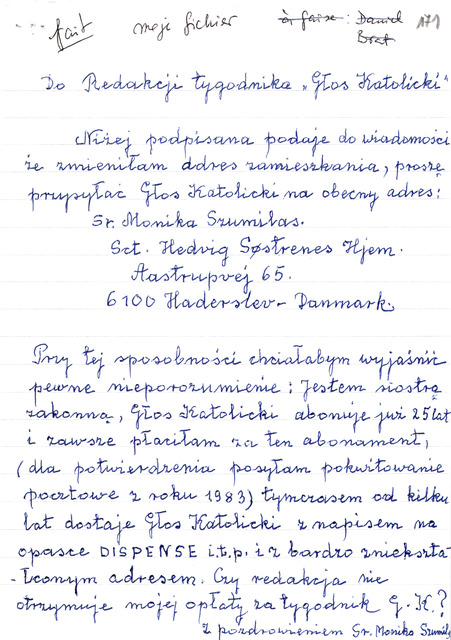 fait moje fichier à faire : Daniel 171
Brat
Do Redakcji tygodnika „Głos Katolicki"
Niżej podpisana podaje do wiadomości
że zmieniłam ddres zamieszkania, proszę
przysyłać Głos Katolicki na obecny adres:
Sr. Monika Szumiłas.
Sct. Hedvig Søstrenes Hjem.
Aastrupvej 65.
6100 Haderslev - Danmark.
Pry tej sposobności chciałabym wyjaśnić
pewne nieporozumienie: Jestem siostrą
zakonną, Głos Katolicki abonuję już 25 lat
i zawsze płaciłam za ten abonament,
(dla potwierdzenia posyłam pokwitowanie
pocztowe z roku 1983) tymczasem od kilku
lat dostaję Głos Katolicki z napisem na
opasce DISPENSE i.t.p. i z bardzo zniekszta
-łconym adresem. Czy redakcja nie
otrzymuje mojej opłaty za tygodnik G. K.?
z pozdrowieniem Sr. Monika Szumiłas